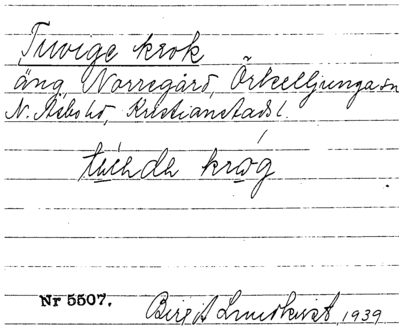 Tuvige krok
äng, Norregård, Örkelljunga sn
N. Åsbo hd, Kristianstads l.
krog
Nr 5507. Birgit Lundkvist, 1939